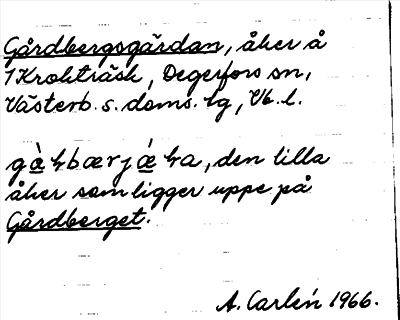 Gårdbergsgärdan, åker å
1 Krokträsk, Degerfors sn,
Västerb. s. doms. lg, Vb. l.
gɑ̀ɽbærjæ̀ɽa, den lilla
åker som ligger uppe på
Gårdberget.
A. Carlén 1966.